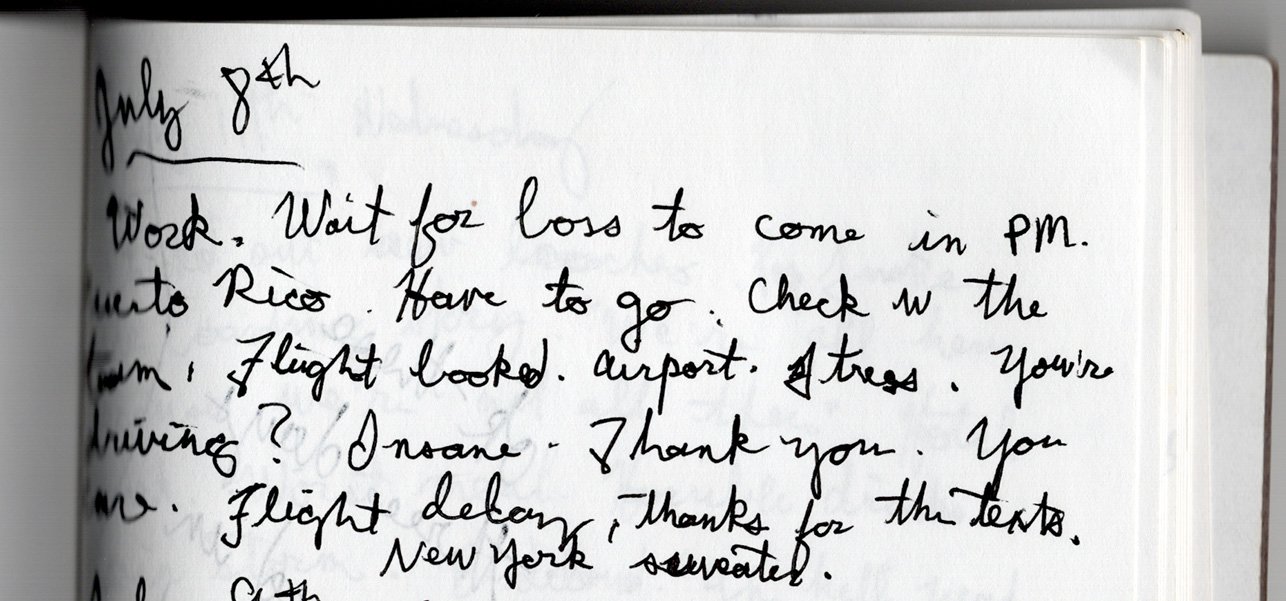 July 8th
Work. Wait for boss to come in PM.
uerto Rico. Have to go. Check w the
Flight booked. airport. Stress. You're
driving? Insane. Thank you. You
are. Flight delay, thanks for the texts.
New York sweater.